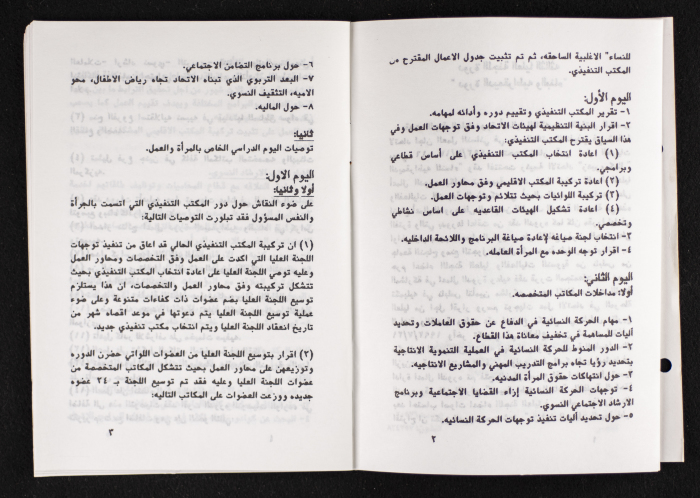 للنساء" الاغلبية الساحقه، ثم تم تثبيت جدول الاعمال المقترح من
المكتب التنفيذي.
اليوم الأول:
١- تقرير المكتب التنفيذي وتقييم دوره وأدائه لمهامه.
٢- اقرار البنية التنظيمية لهيئات الاتحاد وفق توجهات العمل وفي
هذا السياق يقترح المكتب التنفيذي:
(١) اعادة انتخاب المكتب التنفيذي على أساس قطاعي
وبرامجي.
(٢) اعادة تركيبة المكتب الاقليمي وفق محاور العمل.
(٣) تركيبة اللوائيات بحيث تتلائم وتوجهات العمل.
(٤) اعادة تشكيل الهيئات القاعديه على اساس نشاطي
وتخصصي.
٣- انتخاب لجنة صياغه لإعادة صياغة البرنامج واللائحة الداخليه.
٤- اقرار توجه الوحده مع المرأة العامله.
اليوم الثاني:
أولا: مداخلات المكاتب المتخصصه.
١- مهام الحركة النسائية في الدفاع عن حقوق العاملات وتحديد
آليات للمساهمة في تخفيف معاناة هذا القطاع.
٢- الدور المنوط للحركة النسائية في العملية التنموية الانتاجية
بتحديد رؤيا تجاه برامج التدريب المهني والمشاريع الانتاجيه.
٣- حول انتهاكات حقوق المرأة المدنيه.
٤- توجهات الحركة النسائية إزاء القضايا الاجتماعية وبرنامج
الارشاد الاجتماعي النسوي.
٥- حول تحديد آليات تنفيذ توجهات الحركة النسائيه.
٢
٦- حول برنامج التضامن الاجتماعي.
٧- البعد التربوي الذي تبناه الاتحاد تجاه رياض الاطفال، محو
الاميه، التثقيف النسوي.
٨- حول الماليه.
ثانيا:
توصيات اليوم الدراسي الخاص بالمرأة والعمل.
اليوم الاول:
أولا وثانيا:
على ضوء النقاش حول دور المكتب التنفيذي التي اتسمت بالجرأة
والنفس المسؤول فقد تبلورت التوصيات التالية:
(١) ان تركيبة المكتب التنفيذي الحالي قد اعاق من تنفيذ توجهات
اللجنة العليا التي اكدت على العمل وفق التخصصات ومحاور العمل
وعليه توصي اللجنة العليا على اعادة انتخاب المكتب التنفيذي بحيث
تتشكل تركيبته وفق محاور العمل والتخصصات، ان هذا يستلزم
توسيع اللجنة العليا بضم عضوات ذات كفاءات متنوعة وعلى ضوء
عملية توسيع اللجنة العليا يتم دعوتها في موعد اقصاه شهر من
تاريخ انعقاد اللجنة العليا ويتم انتخاب مكتب تنفيذي جديد.
(٢) اقرار بتوسيع اللجنة العليا من العضوات اللواتي حضرن الدوره
وتوزيعهن على محاور العمل بحيث تتشكل المكاتب المتخصصة من
عضوات اللجنة العليا وعليه فقد تم توسيع اللجنة بـ ٢٤ عضوه
جديده ووزعت العضوات على المكاتب التاليه:
٣